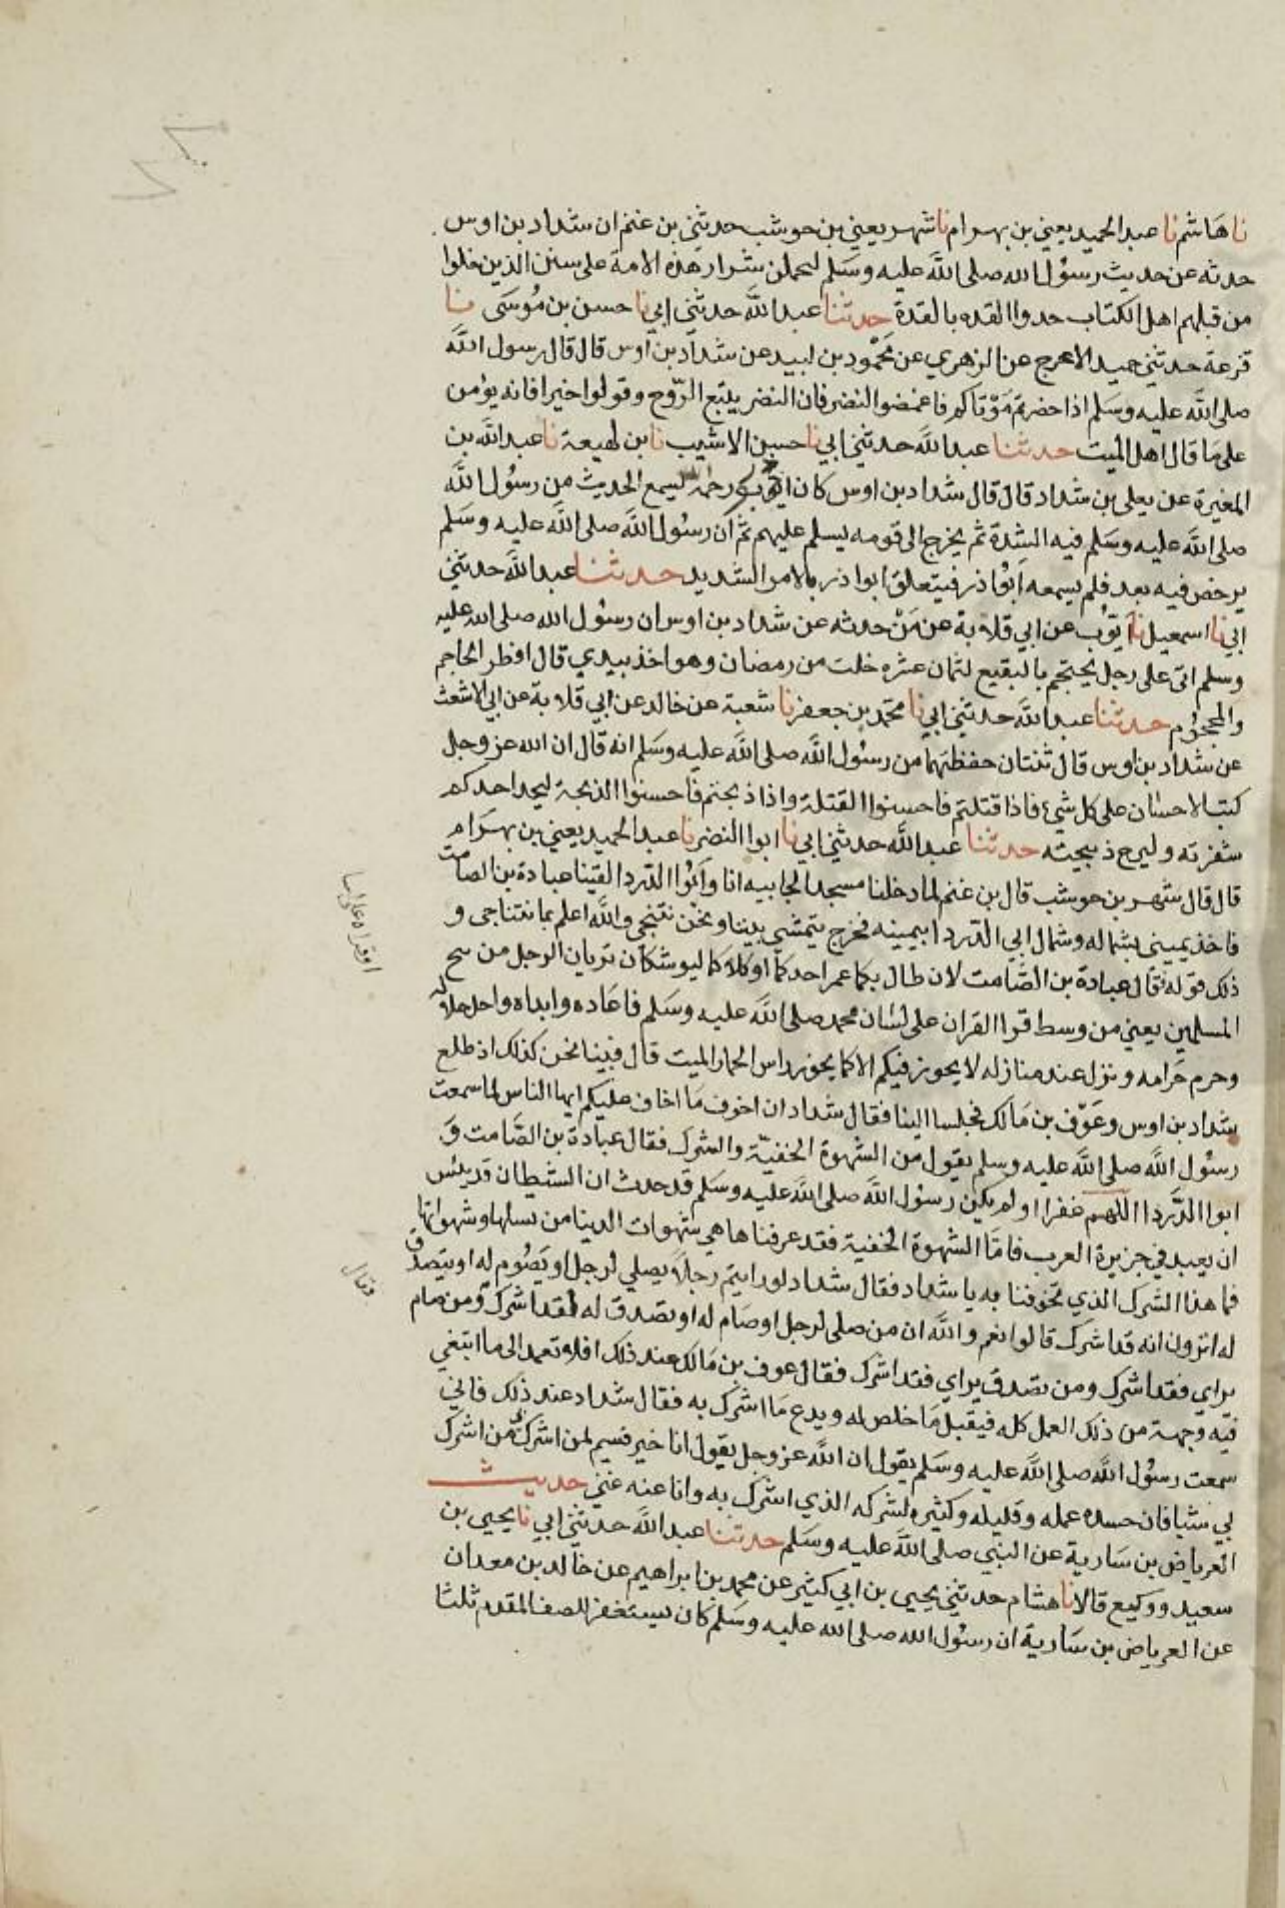 نا هاشم نا عبد الحميد يعني بن بهرام نا شهر يعني بن حوشب حدثني بن غنم ان شداد بن اوس
حدثه عن حديث رسول الله صلى الله عليه وسلم ليحملن شرار هذه الامة على سنن الذين خلوا
من قبلهم اهل الكتاب حدوا القده بالقدة حدثنا عبد الله حدثني ابي نا حسن بن موسى نا
قزعة حدثني حميد الاعرج عن الزهري عن محمود بن لبيد عن شداد بن اوس قال قال رسول الله
صلى الله عليه وسلم اذا حضرتم موتاكم فاغمضوا النضر فان النضر يتبع الروح وقولوا خيرا فانه يؤمن
على ما قال اهل الميت حدثنا عبد الله حدثني ابي نا حسين الاشيب نا بن لهيعة نا عبد الله بن
المغيرة عن يعلى بن شداد قال قال شداد بن اوس كان رحمه الله ليسمع الحديث من رسول الله
صلى الله عليه وسلم فيه الشدة ثم يخرج الى قومه يسلم عليهم ثم ان رسول الله صلى الله عليه وسلم
يرخص فيه بعد فلم يسمعه ابوا ذر فيتعلق ابوا ذر بالامر الشديد حدثنا عبد الله حدثني
ابي نا اسمعيل نا ايوب عن ابي قلابة عن من حدثه عن شداد بن اوس ان رسول الله صلى الله عليه
وسلم اتى على رجل يحتجم بالبقيع لثمان عشره خلت من رمضان وهو اخذ بيدي قال افطر الحاجم
والمحجوم حدثنا عبد الله حدثني ابي نا محمد بن جعفر نا شعبة عن خالد عن ابي قلابة عن ابي الاشعث
عن شداد بن اوس قال ثنتان حفظتهما من رسول الله صلى الله عليه وسلم انه قال ان الله عز وجل
كتب الاحسان على كل شئ فاذا قتلتم فاحسنوا القتلة واذا ذبحتم فاحسنوا الذبحة ليحد احدكم
شفرته وليرح ذبيحته حدثنا عبد الله حدثني ابي نا ابوا النضر نا عبد الحميد يعني بن بهرام
قال قال شهر بن حوشب قال بن غنم لما دخلنا مسجد الجابيه انا وابوا الدردا لقينا عبادة بن الصامت
فاخذ يميني بشماله وشمال ابي الدردا بيمينه فخرج يتمشى بيننا ونحن نتنجى والله اعلم بما نتناجى و
ذلك قوله فقال عبادة بن الصامت لان طال بكما عمر احدكما او كلاكما ليوشكان تريان الرجل من سح
المسلمين يعني من وسط قرا القران على لسان محمد صلى الله عليه وسلم فاعاده وابداه واحل حلاله
وحرم حرامه ونزل عند منازله لا يحوز فيكم الا كما يحوز راس الحمار الميت قال فبينا نحن كذلك اذ طلع
شداد بن اوس وعوف بن مالك فجلسا الينا فقال شداد ان اخوف ما اخاف عليكم ايها الناس لما سمعت
رسول الله صلى الله عليه وسلم يقول من الشهوة الخفية والشرك فقال عبادة بن الصامت و
ابوا الدردا اللهم غفرا او لم يكن رسول الله صلى الله عليه وسلم قد حدث ان الشيطان قد يئس
ان يعبد في جزيرة العرب فاما الشهوة الخفية فقد عرفنا ها هي شهوات الدينا من نسايها وشهواتها
فما هذا الشرك الذي تخوفنا به يا شداد فقال شداد لو رايتم رجلا يصلي لرجل او يصوم له او يتصدق
له اترون انه قد اشرك قالوا نعم والله ان من صلى لرجل او صام له او تصدق له لقد اشرك ومن صام
يراي فقد اشرك ومن تصدق يراي فقد اشرك فقال عوف بن مالك عند ذلك افلا تعمد الى ما ابتغي
فيه وجهه من ذلك العمل كله فيقبل ما خلص له ويدع ما اشرك به فقال شداد عند ذلك فاني
سمعت رسول الله صلى الله عليه وسلم يقول ان الله عز وجل يقول انا خير قسيم لمن اشرك من اشرك
بي شيا فان حسده عمله وقليله وكثيره لشركه الذي اشرك به وانا عنه غني حديث
العرباض بن سارية عن النبي صلى الله عليه وسلم حدثنا عبد الله حدثني ابي نا يحيى بن
سعيد ووكيع قالا نا هشام حدثني يحيى بن ابي كثير عن محمد بن ابراهيم عن خالد بن معدان
عن العرباض بن سارية ان رسول الله صلى الله عليه وسلم كان يستغفر للصف المقدم ثلثا
او قراه على لسا
وقال